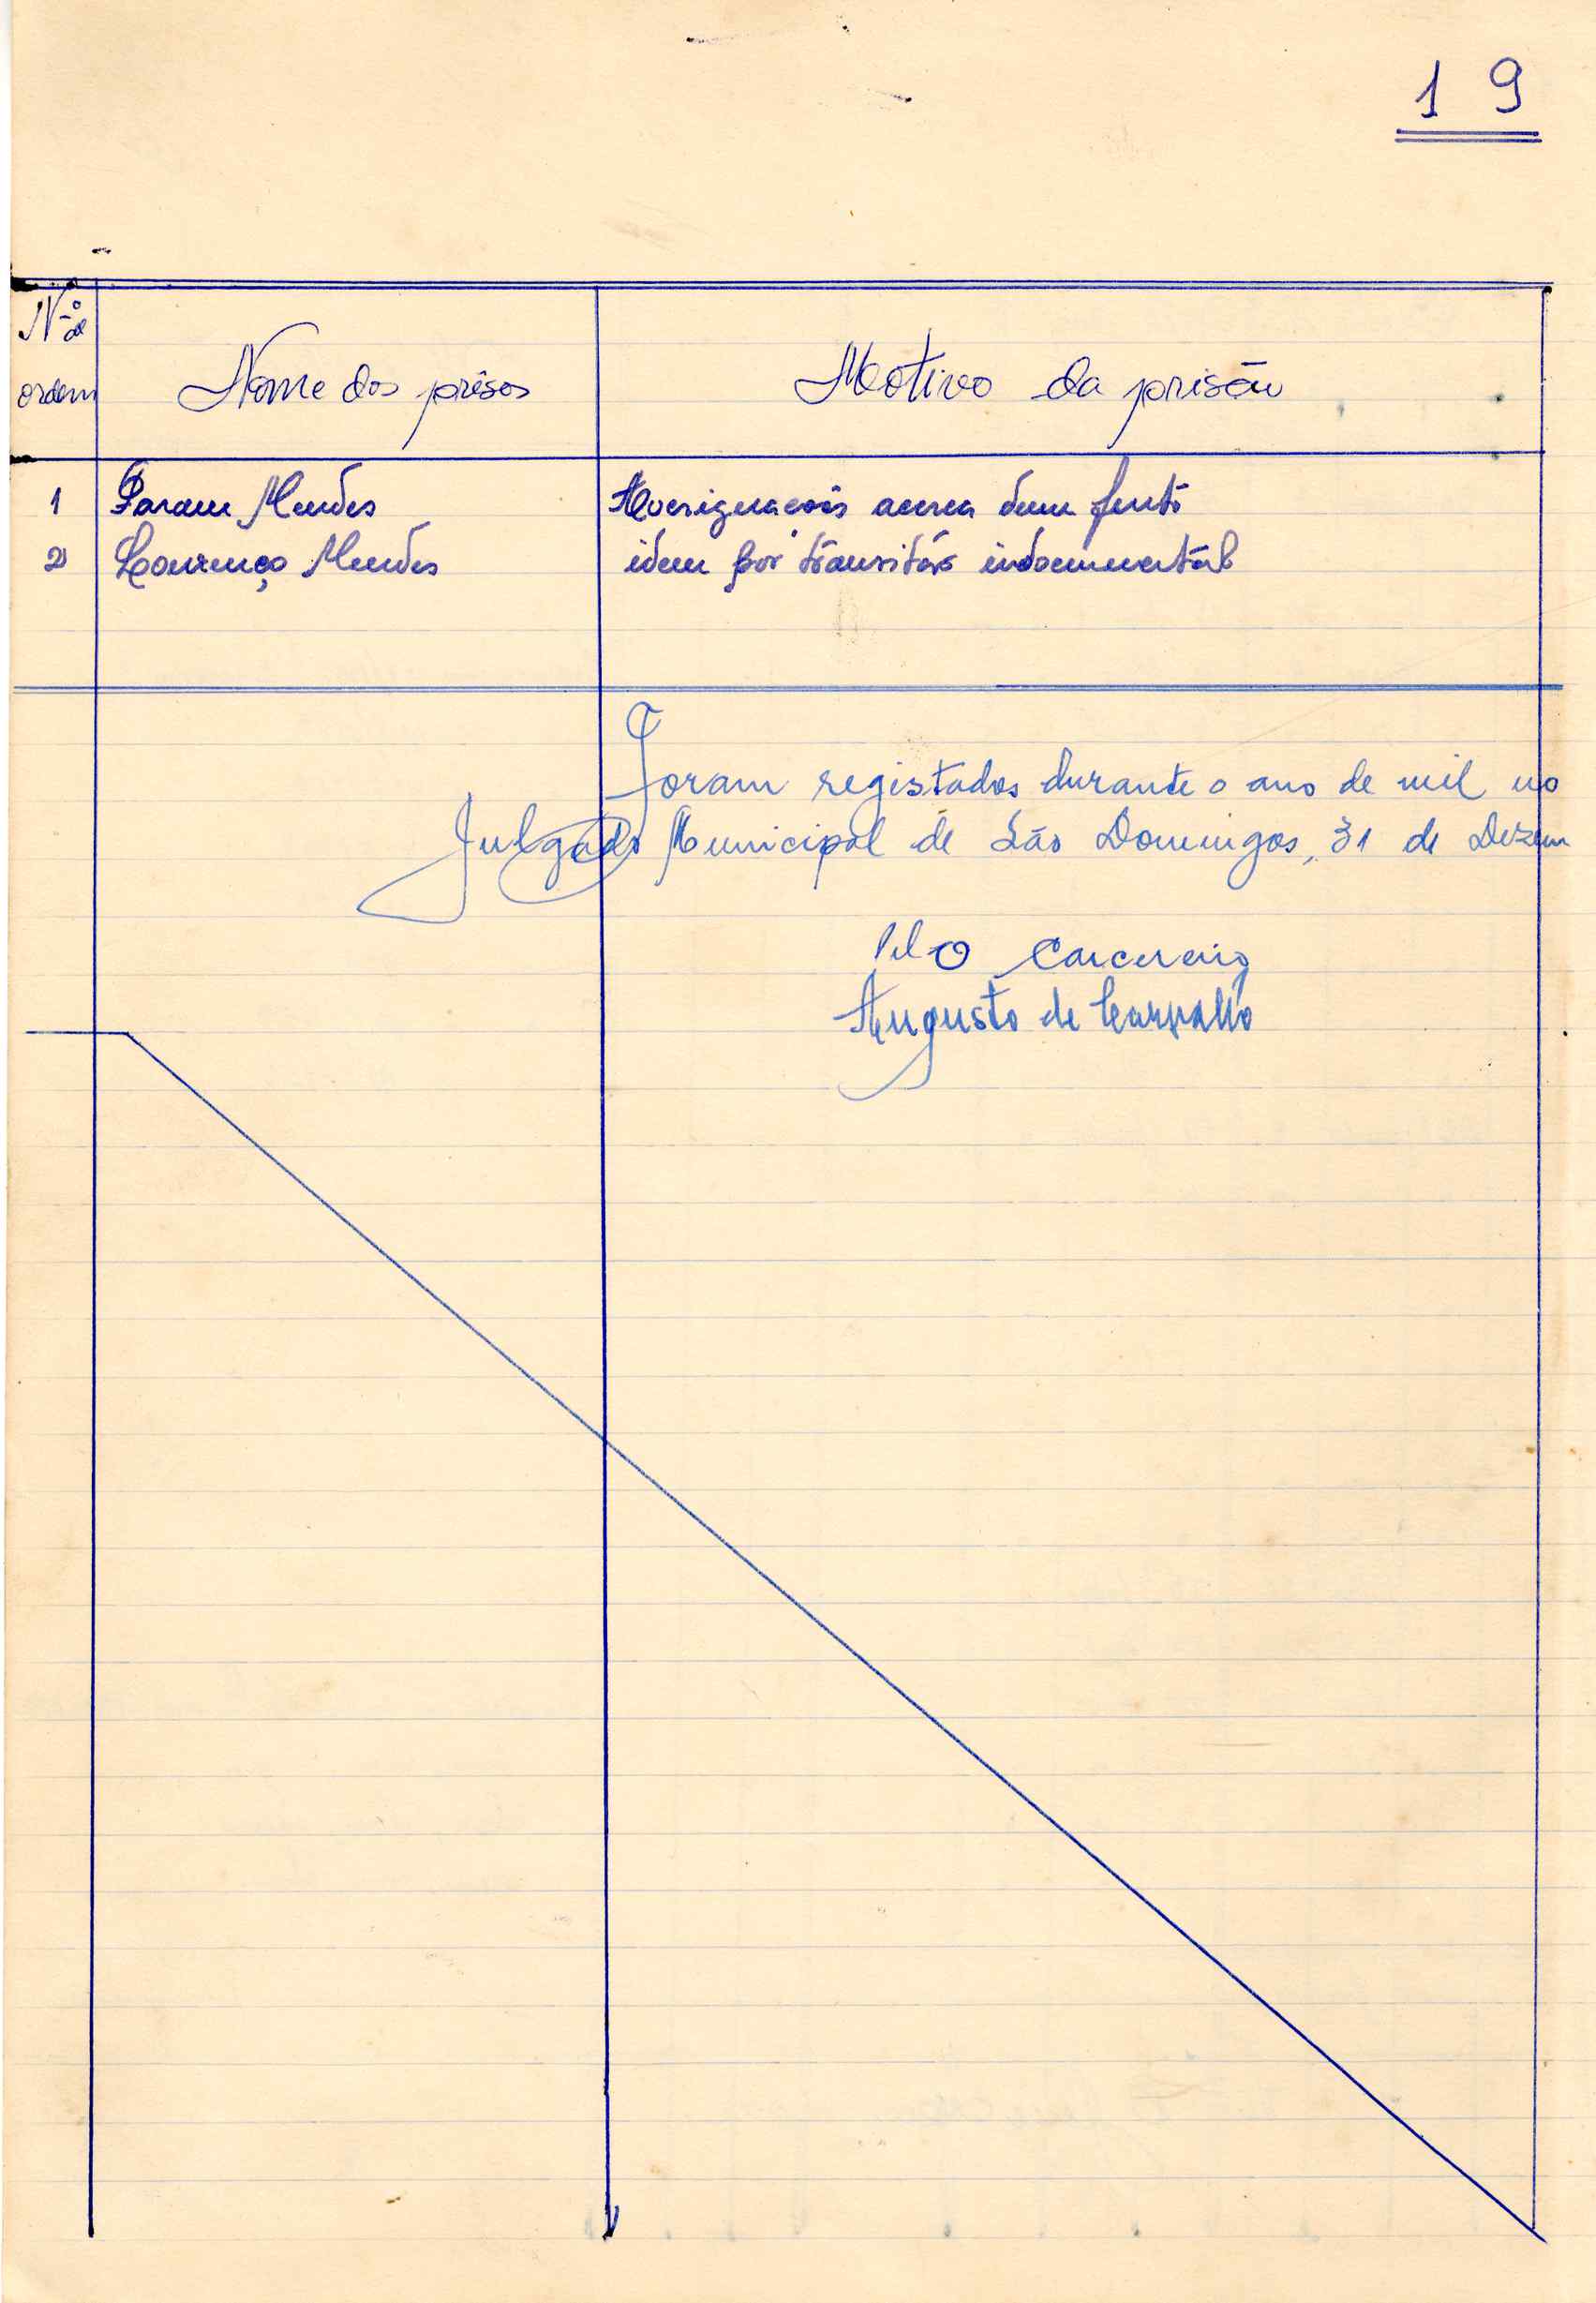 19
Nº de
ordem
Nome dos prêsos
Motivo da prisão
1 Param Mendes Averiguacois acerca dum furto
2 Lourenço Mendes idem por tránsitár indocumentád
Foram registados durante o ano de mil no
Julgado Municipal de São Domingos, 31 de Dezem
Pel O Carcereiro
Augusto de Carvalho